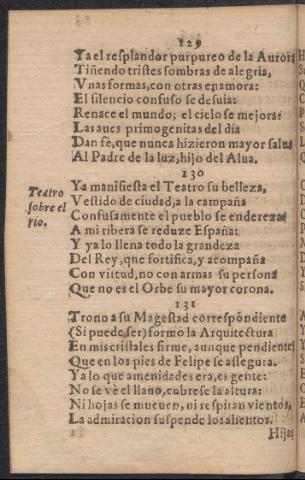 129
Ya el resplandor purpureo de la Aurora
Tiñendo tristes sombras de alegria,
Vnas formas, con otras enamora:
El silencio confuso se desuia:
Renace el mundo; el cielo se mejora:
Las aues primogenitas del dia
Dan fè, que nunca hizieron mayor salua
Al Padre de la luz, hijo del Alua.
130
Teatro
sobre el
rio.
Ya manifiesta el Teatro su belleza,
Vestido de ciudad, a la campaña
Confusamente el pueblo se endereza:
A mi ribera se reduze España:
Y ya lo llena todo la grandeza
Del Rey, que fortifica, y acompaña
Con virtud, no con armas su persona
Que no es el Orbe su mayor corona.
131
Trono a su Magestad correspõndiente
(Si puede ser) formò la Arquitectura
En mis cristales firme, aunque pendiente;
Que en los pies de Felipe se assegura.
Ya lo que amenidades era, es gente:
No se vè el llano, cubrese la altura:
Ni hojas se mueuen, ni respiran vientos,
La admiracion suspende los alientos.
Hijas